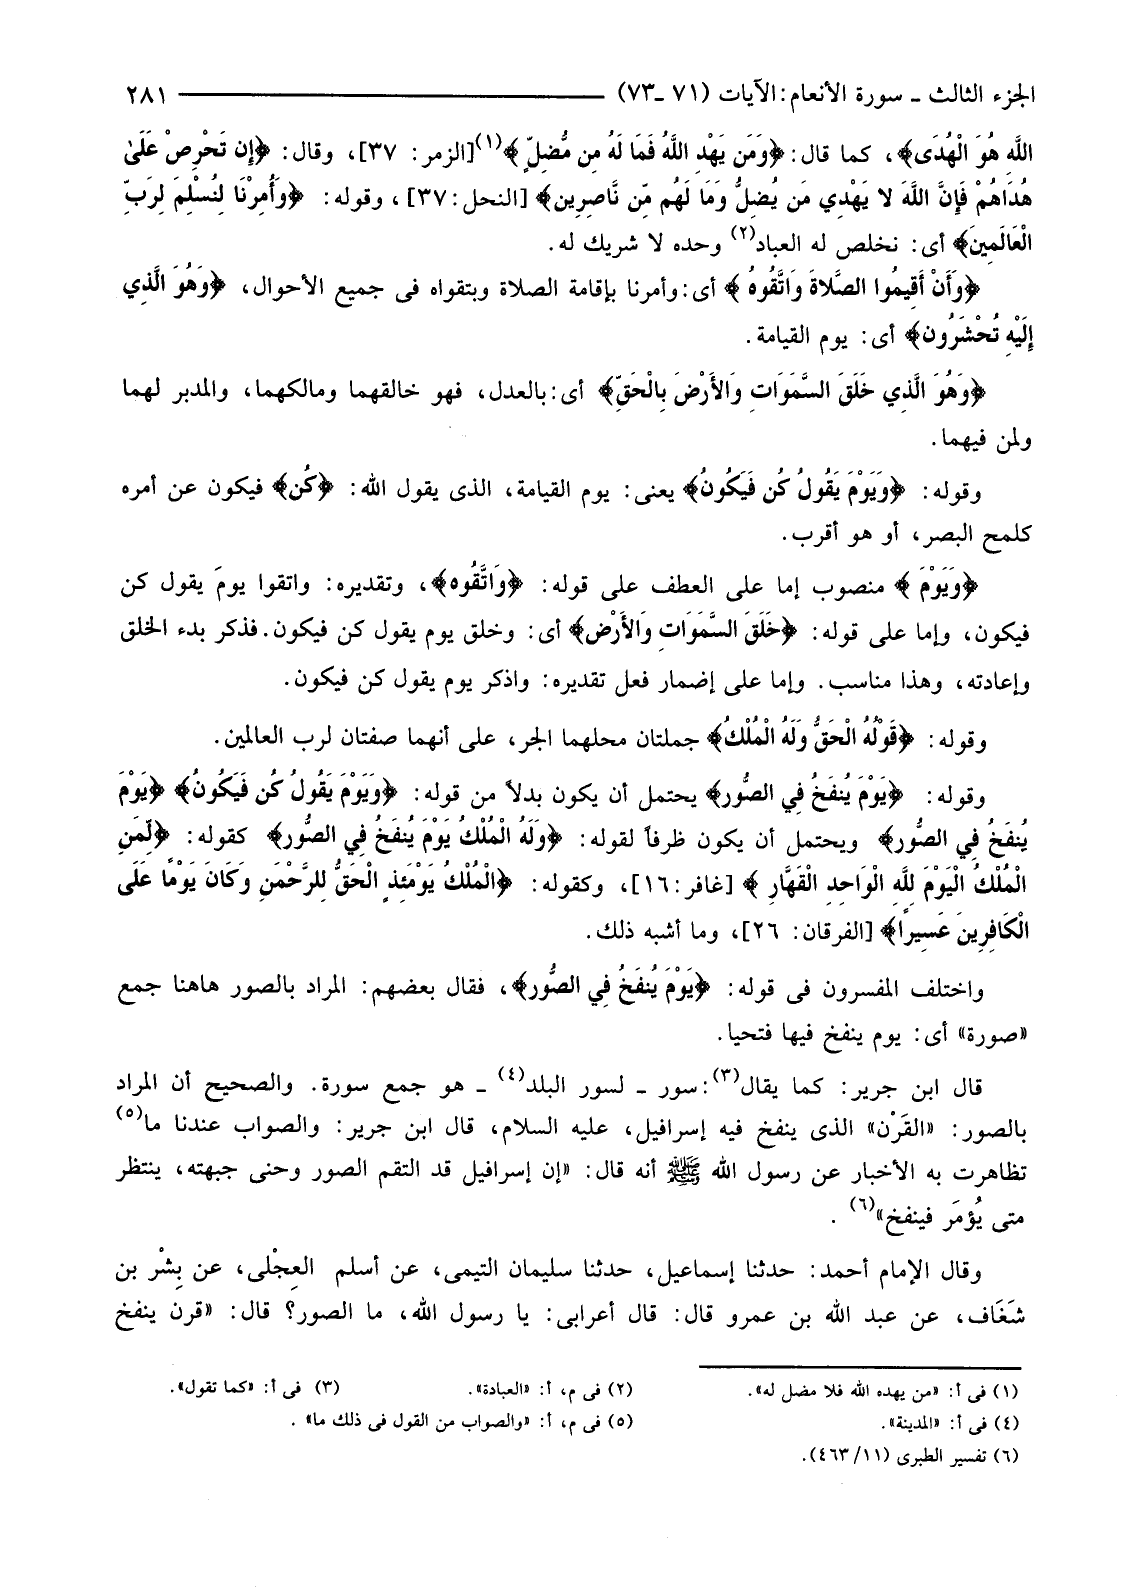 الجزء الثالث ـ سورة الأنعام: الآيات (٧١ ـ٧٣) ٢٨١
اللَّهِ هُوَ الْهُدَى﴾، كما قال: ﴿وَمَن يَهْدِ اللَّهُ فَمَا لَهُ مِن مُّضِلٍّ﴾(١)[الزمر: ٣٧]، وقال: ﴿إِن تَحْرِصْ عَلَىٰ
هُدَاهُمْ فَإِنَّ اللَّهَ لا يَهْدِي مَن يُضِلُّ وَمَا لَهُم مِّن نَّاصِرِين﴾ [النحل:٣٧]، وقوله: ﴿وَأُمِرْنَا لِنُسْلِمَ لِرَبِّ
الْعَالَمِينَ﴾ أى: نخلص له العباد(٢) وحده لا شريك له.
﴿وَأَنْ أَقِيمُوا الصَّلاةَ وَاتَّقُوهُ﴾ أى:وأمرنا بإقامة الصلاة وبتقواه فى جميع الأحوال، ﴿وَهُوَ الَّذِي
إِلَيْهِ تُحْشَرُون﴾ أى: يوم القيامة.
﴿وَهُوَ الَّذِي خَلَقَ السَّمَوَاتِ وَالأَرْضَ بِالْحَقِّ﴾ أى:بالعدل، فهو خالقهما ومالكهما، والمدبر لهما
ولمن فيهما.
وقوله: ﴿وَيَوْمَ يَقُولُ كُن فَيَكُونُ﴾ يعنى: يوم القيامة، الذى يقول الله: ﴿كُن﴾ فيكون عن أمره
كلمح البصر، أو هو أقرب.
﴿وَيَوْمَ﴾ منصوب إما على العطف على قوله: ﴿وَاتَّقُوه﴾، وتقديره: واتقوا يومَ يقول كن
فيكون، وإما على قوله: ﴿خَلَقَ السَّمَوَاتِ وَالأَرْض﴾ أى: وخلق يوم يقول كن فيكون. فذكر بدء الخلق
وإعادته، وهذا مناسب. وإما على إضمار فعل تقديره: واذكر يوم يقول كن فيكون.
وقوله: ﴿قَوْلُهُ الْحَقُّ وَلَهُ الْمُلْكُ﴾ جملتان محلهما الجر، على أنهما صفتان لرب العالمين.
وقوله: ﴿يَوْمَ يُنفَخُ فِي الصُّور﴾ يحتمل أن يكون بدلاً من قوله: ﴿وَيَوْمَ يَقُولُ كُن فَيَكُونُ﴾ ﴿يَوْمَ
يُنفَخُ فِي الصُّور﴾ ويحتمل أن يكون ظرفاً لقوله: ﴿وَلَهُ الْمُلْكُ يَوْمَ يُنفَخُ فِي الصُّور﴾ كقوله: ﴿لِّمَنِ
الْمُلْكُ الْيَوْمَ لِلَّهِ الْوَاحِدِ الْقَهَّارِ﴾ [غافر:١٦]، وكقوله: ﴿الْمُلْكُ يَوْمَئِذٍ الْحَقُّ لِلرَّحْمَنِ وَكَانَ يَوْمًا عَلَى
الْكَافِرِينَ عَسِيرًا﴾ [الفرقان: ٢٦]، وما أشبه ذلك.
واختلف المفسرون فى قوله: ﴿يَوْمَ يُنفَخُ فِي الصُّور﴾، فقال بعضهم: المراد بالصور هاهنا جمع
«صورة» أى: يوم ينفخ فيها فتحيا.
قال ابن جرير: كما يقال(٣): سور ـ لسور البلد(٤) ـ هو جمع سورة. والصحيح أن المراد
بالصور: «القَرْن» الذى ينفخ فيه إسرافيل، عليه السلام، قال ابن جرير: والصواب عندنا ما(٥)
تظاهرت به الأخبار عن رسول الله ﷺ أنه قال: «إن إسرافيل قد التقم الصور وحنى جبهته، ينتظر
متى يُؤمَر فينفخ»(٦) .
وقال الإمام أحمد: حدثنا إسماعيل، حدثنا سليمان التيمى، عن أسلم العِجْلى، عن بِشْر بن
شَغَاف، عن عبد الله بن عمرو قال: قال أعرابى: يا رسول الله، ما الصور؟ قال: «قرن ينفخ
(١) فى أ: «من يهده الله فلا مضل له». (٢) فى م، أ: «العبادة». (٣) فى أ: «كما تقول».
(٤) فى أ: «المدينة». (٥) فى م، أ: «والصواب من القول فى ذلك ما» .
(٦) تفسير الطبرى (١١/ ٤٦٣).